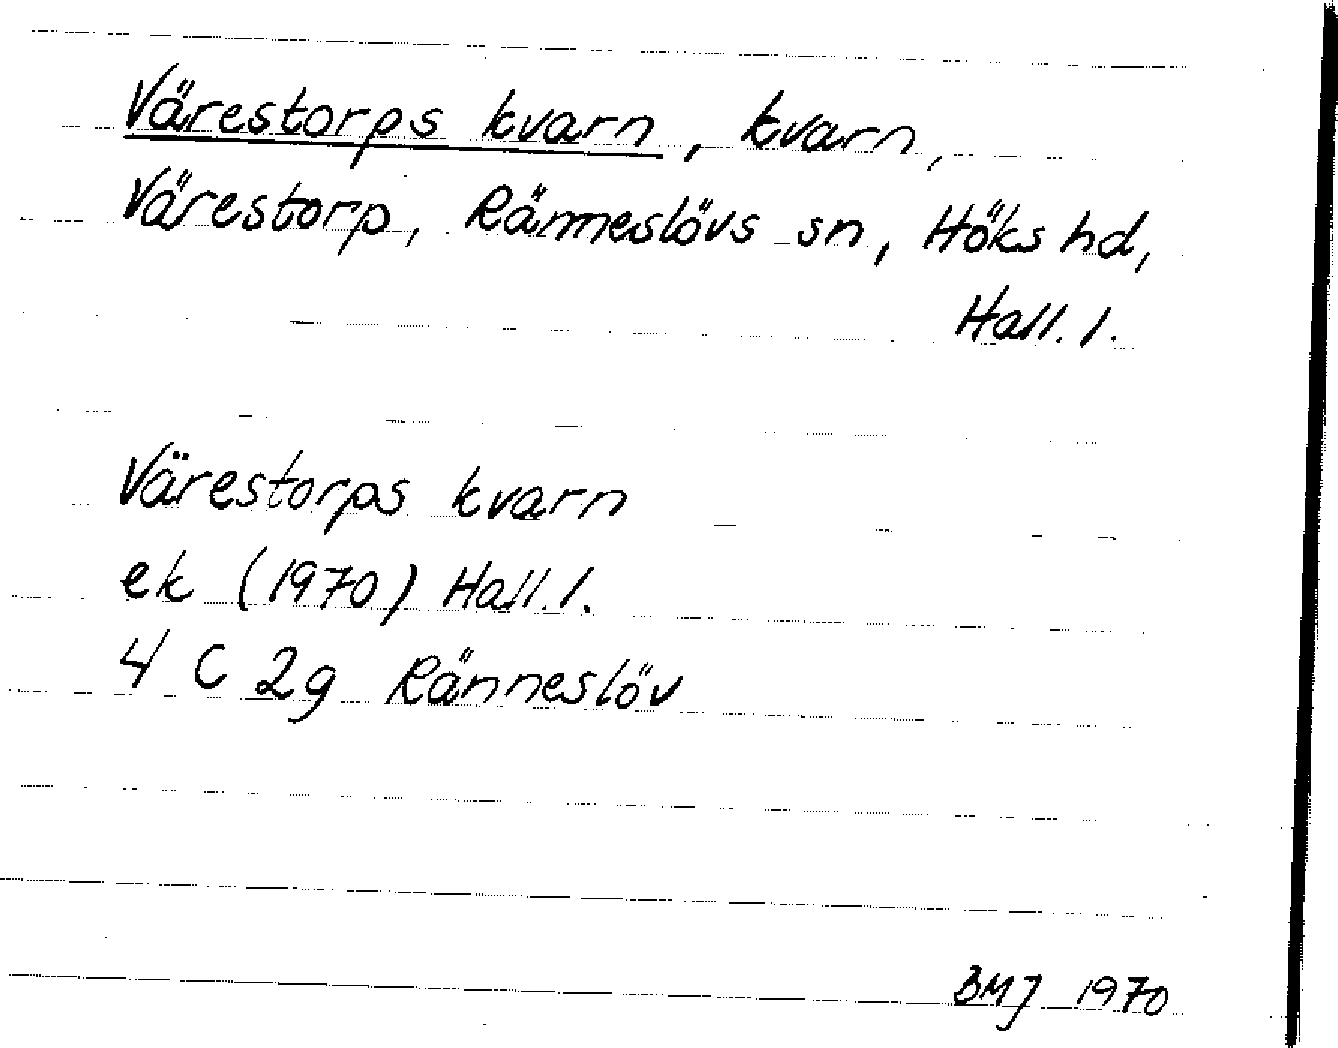 Värestorps kvarn, kvarn,
Värestorp, Ränneslövs sn, Höks hd,
Hall. l.
Värestorps kvarn
ek (1970) Hall. l.
4 C 2g Ränneslöv
BMJ 1970